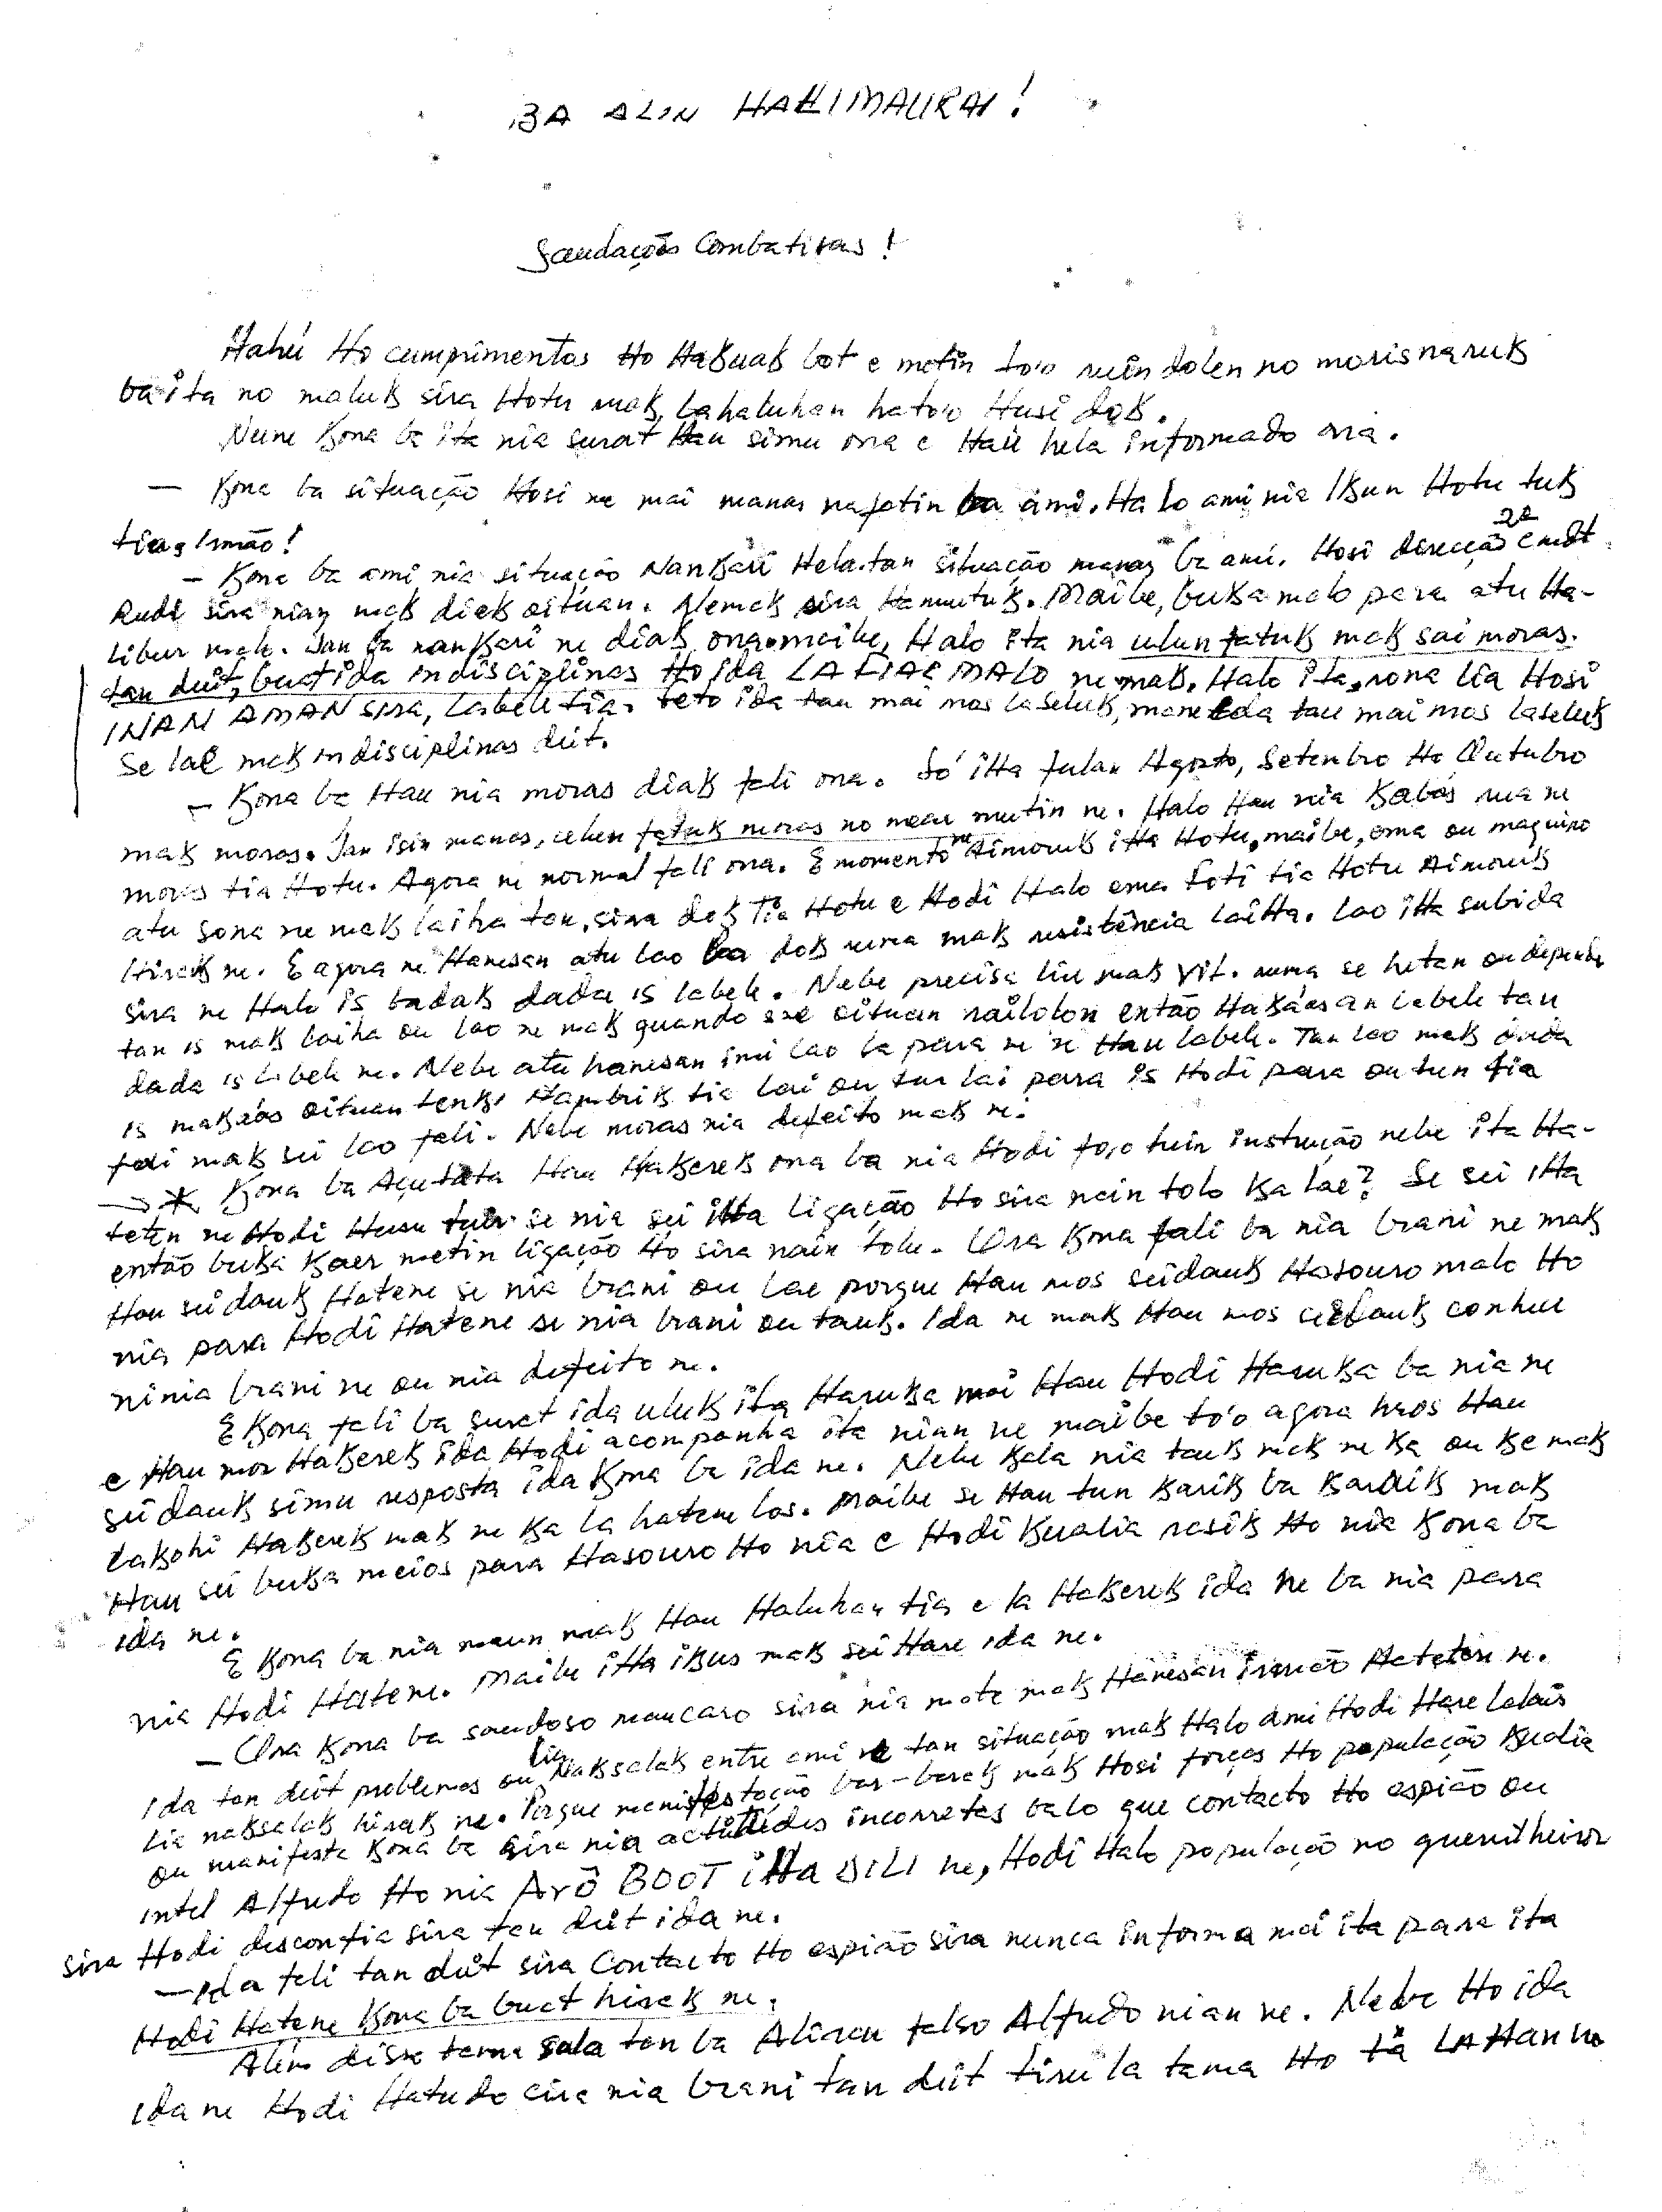 BA ALIN HALIMAURAI!
Saudações Combativas!
Hahú Ho cumprimentos Ho Hakuak bot e metin to'o ruin dolen no moris naruk
ba ita no maluk sira Hotu mak, la haluhan hato'o Husi dok.
Nune kona ba ita nia surat Hau simu ona e Hau hela informado ona.
— Kona ba situação Hosi ne mai manas nafatin ba ami. Halo ami nia Ikun Hotu tuk
tia, Irmão!
- Kona ba ami nia situação Nankari Hela. tan situação manas ba ami. Hosi direcção 2ª e mot
Rudi sira nian mak diek oituan. Nemak sira Hamutuk. Maibe, buka malo para atu Ha-
libur malo. Tan ba nankari ne diak ona. maibe, Halo ita nia ulun fatuk mak sai moras.
tan duit, buat ida indisciplinas Ho ida LA FIAR MALO ne mak. Halo ita, rona lia Hosi
INAN AMAN sira, labele tia. teto ida tau mai mos la seluk, mane ida tau mai mos laseluk
Se lae mak indisciplinas diit.
- Kona ba Hau nia moras diak fali ona. Só iHa fulan Agosto, Setenbro Ho Outubro
mak moras. Tan isin manas, ulun fatuk moras no mear mutin ne. Halo Hau nia kabas rua ne
moras tia Hotu. Agora ne normal fali ona. E momento ne Aimoruk iHa Hotu, maibe, ema ou maquino
atu sona ne mak laiha tan, sira dok Tia Hotu e Hodi Halo ema foti tia Hotu Aimoruk
Hirak ne. E agora ne Hanesan atu lao ba dok ruma mak resistência laiHa. lao iHa subida
sira ne Halo is badak dada is labele. Nebe precisa liu mak vit. numa se hetan ou depende
tan is mak laiha ou lao ne mak quando sae oituan railolon então Hakaas an labele tan
dada is labele ne. Nebe atu hanesan imi lao la para ne'e Hau labele. Tan lao mak dada
is makaas oituan tenki Hambrik tia lai ou tur lai para is Hodi para ou tun tia
foi mak sei lao fali. Nebe moras nia defeito mak ne.
→ * Kona ba Açutata Hau Hakerek ona ba nia Hodi to'o tuir instrução nebe ita Ha-
teten ne Hodi Husu tuir se nia sei iHa ligação Ho sira nain tolo ka lae? Se sei iHa
então buka kaer metin ligação Ho sira nain tolu. Ora kona fali ba nia brani ne mak
Hau seidauk Hatene se nia brani ou lae porque Hau mos seidauk Hasouro malo Ho
nia para Hodi Hatene se nia brani ou tauk. Ida ne mak Hau mos seidauk conhece
ninia brani ne ou nia defeito ne.
E kona fali ba surat ida uluk ita Haruka mai Hau Hodi Haruka ba nia ne
e Hau mos Hakerek ida Hodi acompanha ita nian ne maibe to'o agora ne'e os Hau
seidauk simu resposta ida kona ba ida ne. Nebe kala nia tauk mak ne ka ou ke mak
lakohi Hakerek mak ne ka la hatene los. Maibe se Hau tun karik ba Kardik mak
Hau sei buka meios para Hasouro Ho nia e Hodi kualia rasik Ho nia kona ba
ida ne.
E kona ba nia maun mak Hau Haluhan tia e la Hakerek ida ne ba nia para
nia Hodi Hatene. Maibe iHa ikus mak sei Hare ida ne.
- Ora kona ba saudoso maucaro sira nia mate mak Hanesan irmão Hateten ne.
Ida tan deit problemas ou lia Naksalak entre ami ne tan situação mak Halo ami Hodi Hare lalais
lia naksalak hirak ne. Porque manifestação bar-barak mak Hosi forças Ho população kualia
ou manifesta kona ba sira nia actitudes incorretas balo que contacto Ho espião ou
intel Alfredo Ho nia Avô BOOT iHa DILI ne, Hodi Halo população no guerrilheiros
sira Hodi desconfia sira tan deit ida ne.
— Ida fali tan deit sira Contacto Ho espião sira nunca informa mai ita para ita
Hodi Hatene kona ba buat hirak ne.
Além disso tama sala tan ba Aliran falso Alfredo nian ne. Nebe Ho ida
ida ne Hodi Hatudo sira nia brani tan deit tiru la tama Ho tá LA HAN no